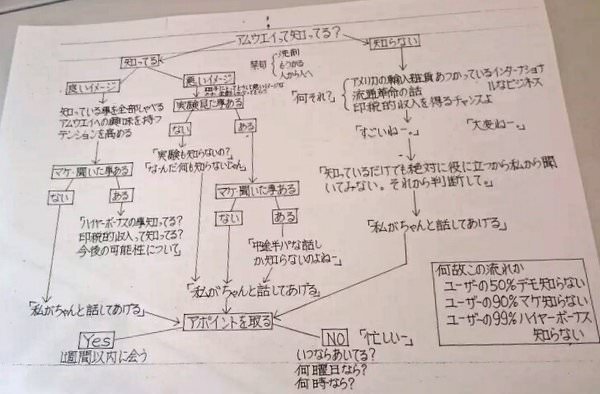 アムウエイって知ってる?
知ってる
知らない
禁句
洗剤
もうかる
人から人へ
良いイメージ
悪いイメージ
知っている事を全部しゃべる
アムウエイへの興味を持つ
テンションを高める
実験見た事ある
ない
ある
「実験も知らないの?
「なーんだ何も知らないじゃん」
マケ・聞いた事ある
ない
ある
「ハイヤーボーナスの事知ってる?
印税的収入って知ってる?
今後の可能性について」
マケ・聞いた事ある
ない
ある
「中途半パな話し
か知らないのよねー」
「何それ?」
アメリカの輸入雑貨あつかっているインターナショナ
ルなビジネス
流通革命の話
印税的収入を得るチャンスよ
「すごいねー。」
「大変ねー。」
「知っているだけでも絶対に役に立つから私から聞
いてみない。それから判断して。」
「私がちゃんと話してあげる」
「私がちゃんと話してあげる」
「私がちゃんと話してあげる」
アポイントを取る
Yes
1週間以内に会う
NO
「忙しいー」
いつならあいてる?
何曜日なら?
何時なら?
何故この流れか
ユーザーの50%デモ知らない
ユーザーの90%マケ知らない
ユーザーの99%ハイヤーボーナス
知らない